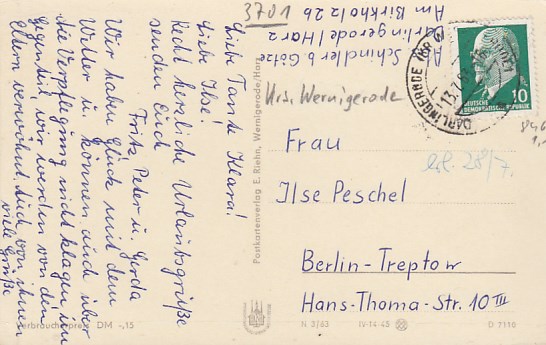 3701
Abs. Schindler b. Götze
Darlingerode/Harz
Am Birkholz 26
Krs. Wernigerode
Liebe Tante Klara!
Liebe Ilse!
Recht herzliche Urlaubsgrüße
senden Euch
Fritz, Peter u. Gerda
Wir haben Glück mit dem
Wetter u. können auch über
die Verpflegung nicht klagen im
Gegenteil, wir werden von den
Eltern verwöhnt. Auch von ihnen
viele Grüße
Verbraucherpreis DM -,15
Postkartenverlag E. Riehn, Wernigerode/Harz
DARLINGERODE
13.7.
DEUTSCHE
DEMOKRATISCHE REPUBLIK
10
28/7.
Frau
Ilse Peschel
Berlin-Treptow
Hans-Thoma-Str. 10 III
N 3/63
IV-14-45
D 7110